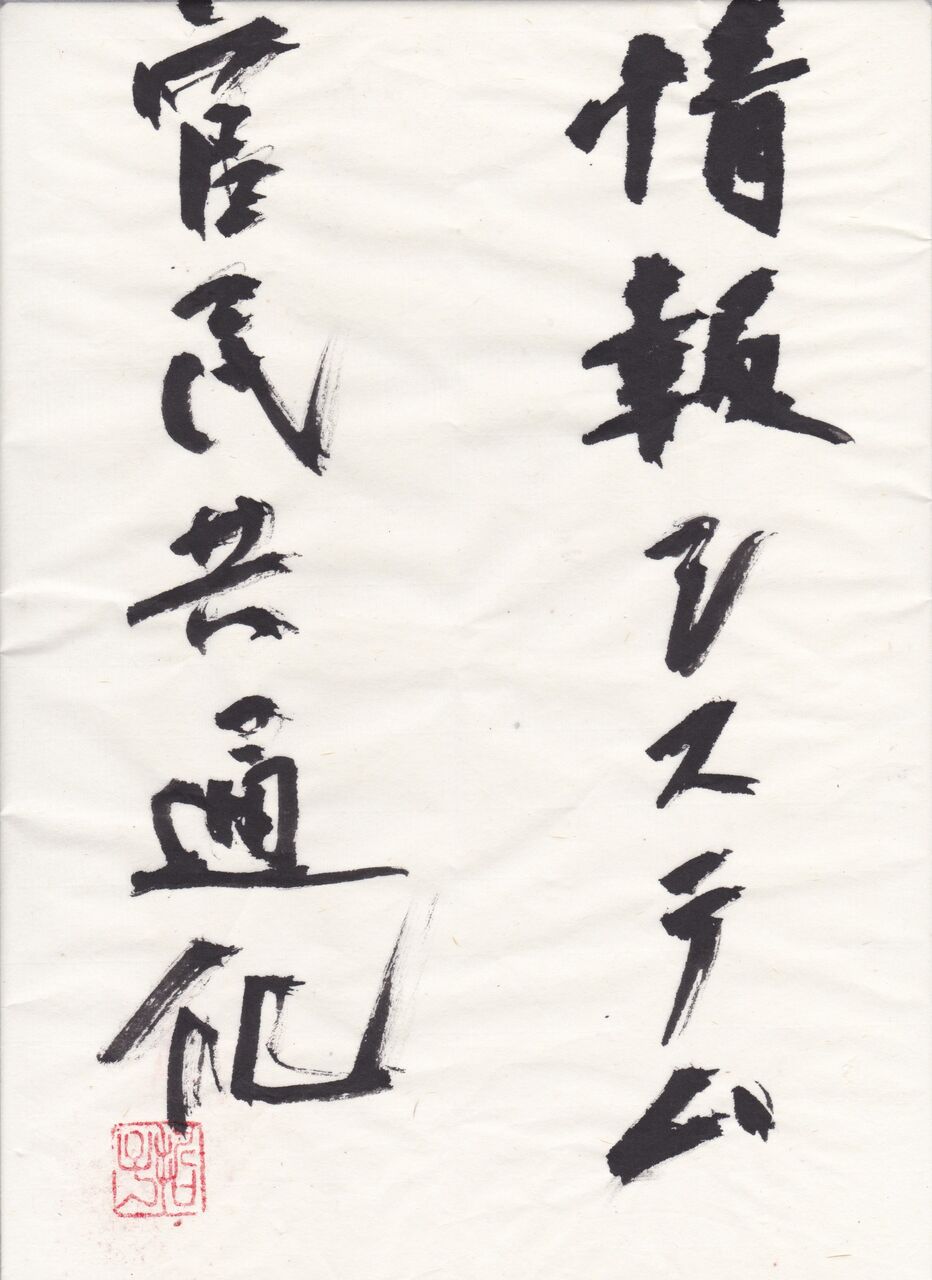 情報システム
官民共通化